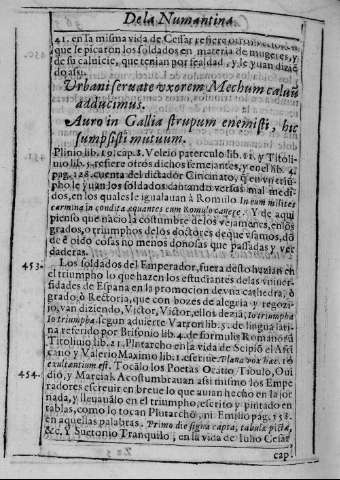 De la Numantina.
41. en la misma vida de Cesar refiere otros versos en
que le picaron los soldados en materia de mugeres, y
de su caluicie, que tenian por fealdad, y le yuan dizẽ
do assi.
Vrbani seruate vxorem Mechum caluũ
adducimus.
Auro in Gallia strupum enemisti, hic
sumpsisti mutuum.
Plinio lib. 19. cap. 8. Veleio paterculo lib. 11. y Titoli-
uio lib. 5. refiere otros dichos semejantes, y en el lib. 4.
pag. 128. cuenta del dictador Cincinato, q̃ en vn triũ
pho le yuan los soldados cantando versos mal medi-
dos, en los quales le igualauan à Romulo In eum milites
carmina incondita æquantes eum Romulo canere. Y de aqui
pienso que nacio la costumbre de los vejamenes, en los
grados, o triumphos de los doctores de que vsamos, dõ
de è oido cosas no menos donosas que passadas y ver
daderas.
453. Los soldados del Emperador, fuera desto hazian en
el triumpho lo que hazen los estudiantes de las vniuer-
sidades de España en la promocion de vna cathedra, ò
grado, ò Rectoria, que con bozes de alegria y regozi-
jo, van diziendo, Victor, Victor, ellos dezia, Io triumpha
Io triumpha. segun aduierte Varron lib. 5. de lingua lati-
na referido por Brisonio lib. 4. de formulis Romanorũ
Titoliuio lib. 21. Plutarcho en la vida de Scipiõ el Afri
cano y Valerio Maximo lib. 1. escriue.
existentium est. Tocãlo los Poetas Oratio, Tibulo, Oui
454. dio, y Marcial. Acostumbrauan assi mismo los Empe
radores escreuir en breue lo que auian hecho en la jor
nada, y lleuauãlo en el triumpho, escrito y pintado en
tablas, como lo tocan Plutarcho, ni Emilio pag. 158.
en aquellas palabras. Primo die signa capta, tabulæ pictæ,
&c. Y Suetonio Tranquilo, en la vida de Iulio Cesar
cap.